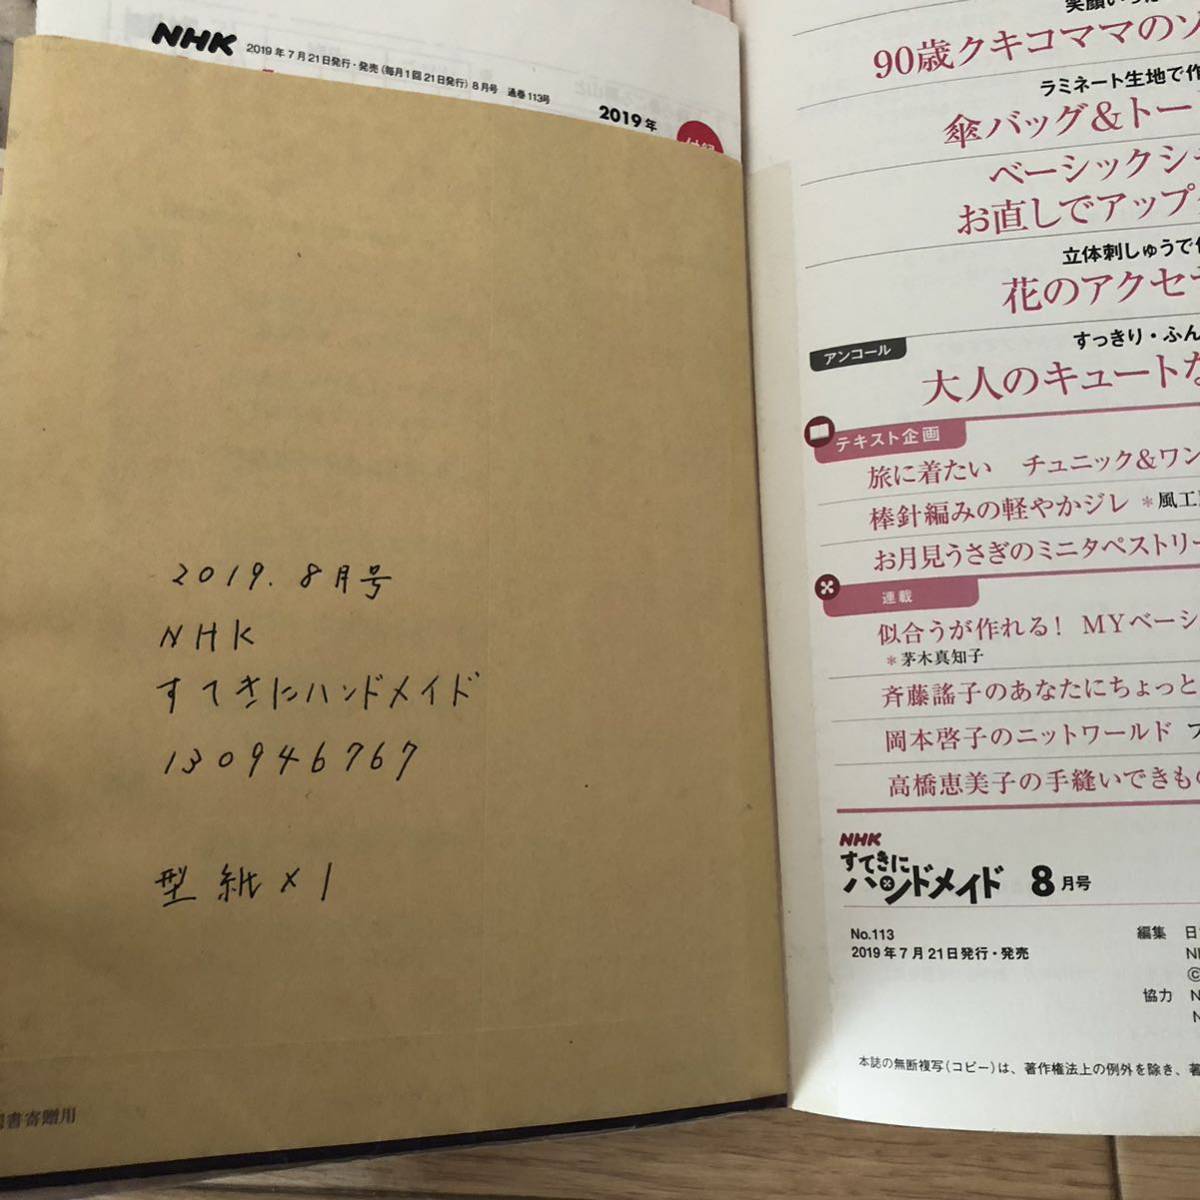 NHK 2019年7月21日発行・発売(毎月1回21日発行) 8月号 通巻113号
2019年
2019. 8月号
NHK
すてきにハンドメイド
130946767
型紙×1
書寄贈用
笑顔いっぱ
90歳クキコママのソ
ラミネート生地で作
傘バッグ&トー
ベーシックシ
お直しでアップ
立体刺しゅうで作
花のアクセ
アンコール
すっきり・ふん
大人のキュートな
テキスト企画
旅に着たい チュニック&ワン
棒針編みの軽やかジレ *風工
お月見うさぎのミニタペストリー
連載
似合うが作れる! MYベーシ
*茅木真知子
斉藤謠子のあなたにちょっと
岡本啓子のニットワールド
高橋恵美子の手縫いできもの
NHK
すてきに
ハンドメイド 8月号
No.113
2019年7月21日発行・発売
編集 日
協力 N
本誌の無断複写(コピー)は、著作権法上の例外を除き、著